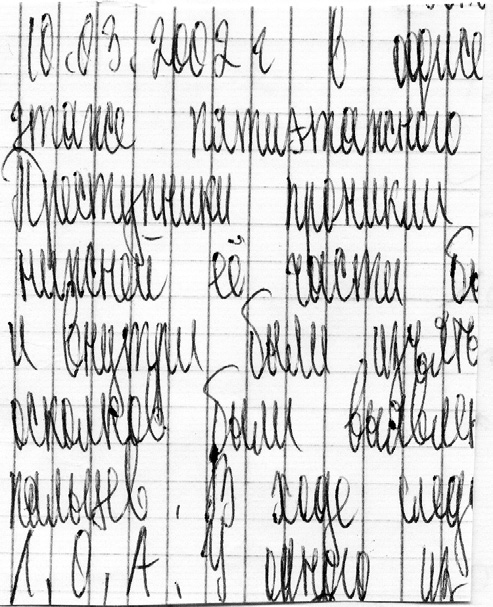 10.03.2002 г в офисе
этаже пятиэтажного
Преступники проникли
нижней её части бы
и внутри были изъяты
осколков были выявлен
пальцев. В ходе след
Л.О.А. У одного из